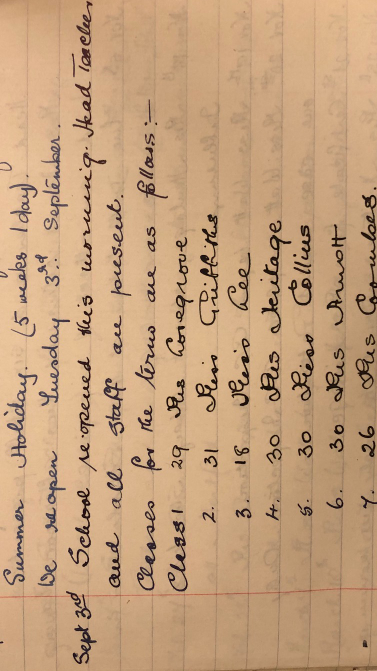 Summer Holiday. (5 weeks 1 day).
We re open Tuesday 3rd. September.
Sept 3rd School re-opened this morning. Head Teacher
and all staff are present.
Classes for the term are as follows:-
Class 1 29 Mrs Cosegrove
2. 31 Miss Griffiths
3. 18 Miss Lee
4. 30 Mrs Heritage
5. 30 Miss Collins
6. 30 Mrs Arnott
7. 26 Mrs Coombes.